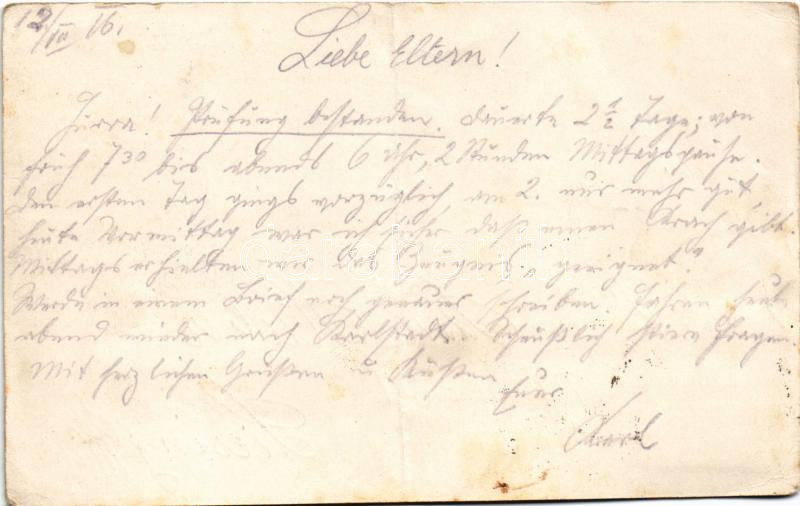 12/III 16.
Liebe Eltern!
Hurra! Prüfung bestanden. Dauerte 2 1/2 Tage; von
früh 7 30 bis abends 6 Uhr, 2 Stunden Mittagspause.
Den ersten Tag gings vorzüglich, am 2. nur mehr gut,
heute Vormittag war ich sicher daß einen Krach gibt.
Mittags erhielten wir das Zeugnis „geeignet."
Werde in einem Brief noch genaues schreiben. Fahren heute
abend wieder nach Karlstadt. Scheußlich Fragen.
Mit herzlichen Grüßen u Küssen
Euer
Karl